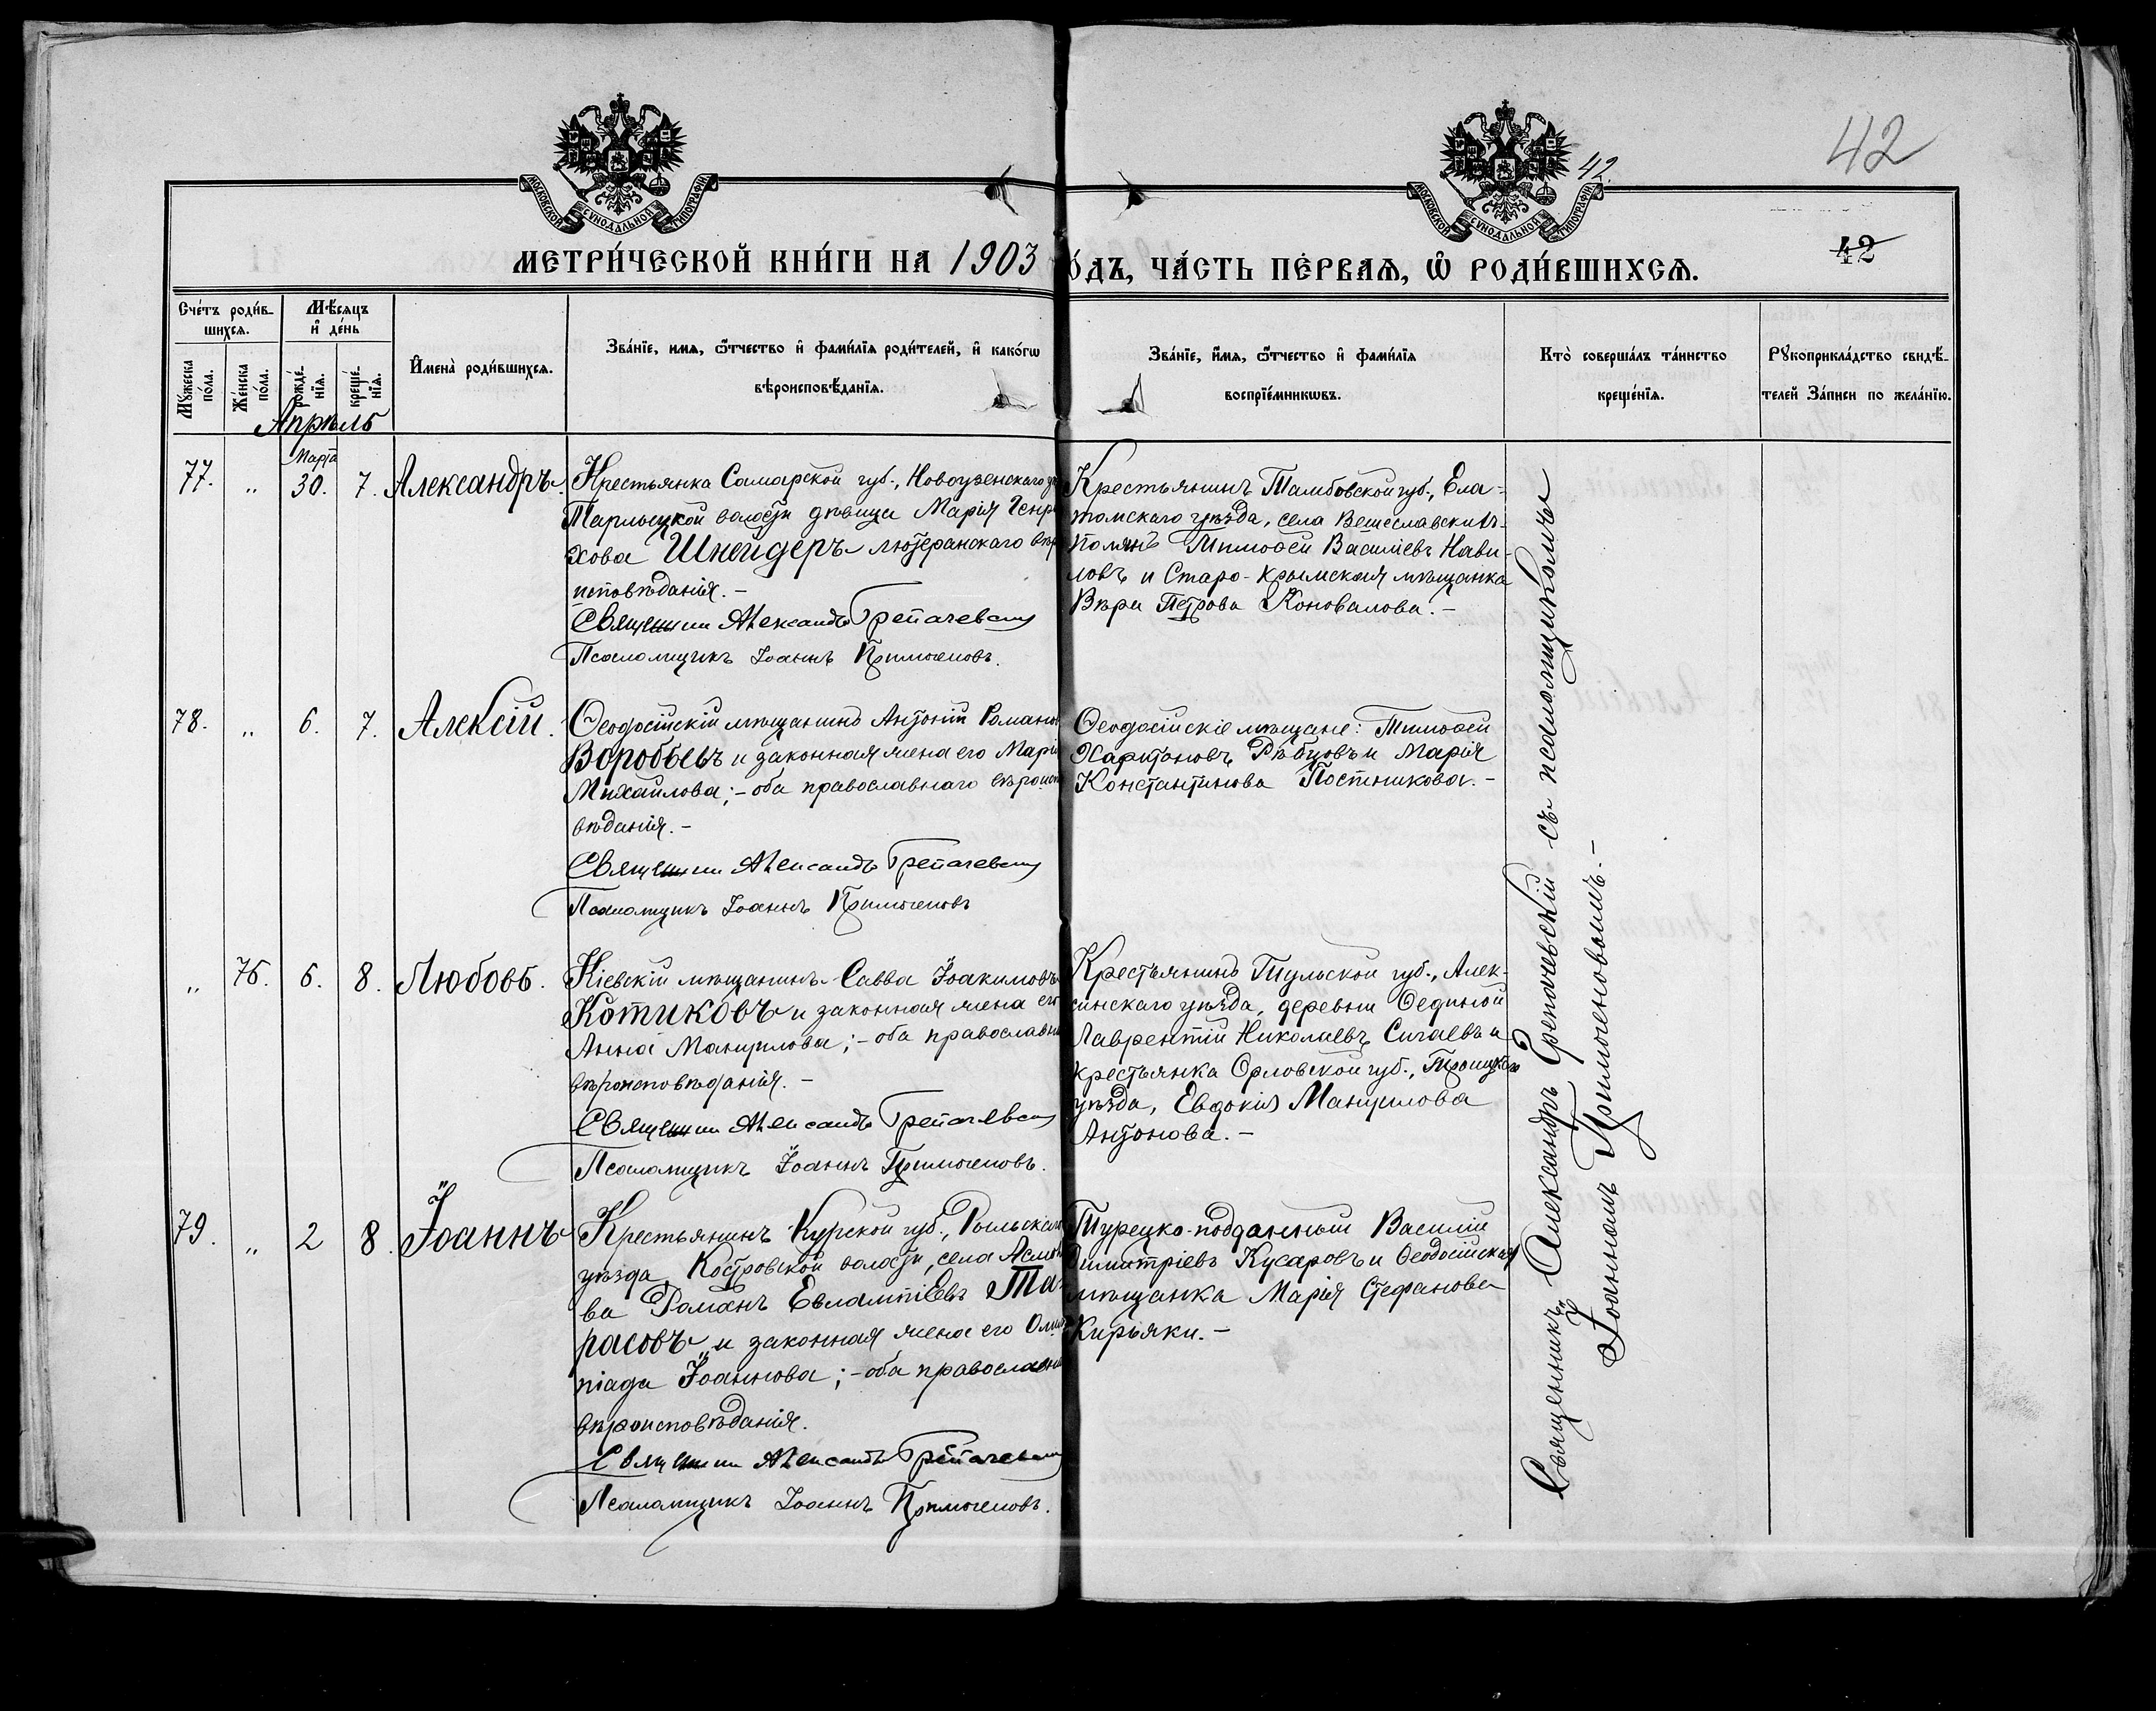 МОСКОВСКОЙ СУНОДАЛЬНОЙ ТИПОГРАФІИ
МОСКОВСКОЙ СУНОДАЛЬНОЙ ТИПОГРАФІИ
42.
42
42
МЕТРИ́ЧЕСКОЙ КНИ́ГИ НА 1903
О́ДЪ, ЧА́СТЬ ПЕ́РВАѦ, Ѡ҆ РОДИ́ВШИХСѦ.
Сче́тъ роди́в-
шихсѧ.
Мꙋжеска
по́ла.
Же́нска
по́ла.
Мѣ́сяцъ
и҆ де́нь
рожде́-
нїѧ.
креще́-
нїѧ.
И҆мена̀ роди́вшихсѧ.
Зва́нїе, имѧ, ѻ҆́тчество и҆ фами́лїѧ роди́телей, и҆ како́гѡ
вѣроисповѣ́данїѧ.
Зва́нїе, и҆́мѧ, ѻ҆́тчество и҆ фами́лїѧ
воспрїе́мникѡвъ.
Кто̀ соверша́лъ та́инство
креще́нїѧ.
Рꙋкоприкла́дство свидѣ́-
телей За́писи по жела́нїю.
Апрѣль
77.
"
Марта
30.
7.
Александръ.
Крестьянка Самарской губ., Новоузенскаго
Тарлыцкой волости дѣвица Марія Генри
хова Шнейдеръ лютеранскаго вѣро
исповѣданія.-
Священник Александр Грепачевский
Псаломщикъ Іоаннъ Примогеновъ.
Крестьянинъ Тамбовской губ., Ела-
томскаго уѣзда, села Вешеславскихъ-
Полянъ Тимоѳей Василіевъ Нави-
ловъ и Старо-Крымская мѣщанка
Вѣра Петрова Коновалова.-
78.
"
6.
7.
Алексій.
Ѳеодосійскій мѣщанинъ Антоній Романов
Воробьевъ и законная жена его Марія
Михайлова;-оба православнаго вѣроиспо
вѣданія.-
Священник Александр Грепачевский
Псаломщикъ Іоаннъ Примогеновъ
Ѳеодосійскіе мѣщане: Тимоѳей
Харитоновъ Рѣбцовъ и Марія
Константинова Постникова.-
"
76.
6.
8.
Любовь.
Кіевскій мѣщанинъ Савва Іоакимовъ
Котиковъ и законная жена его
Анна Мануилова;-оба православн
вѣроисповѣданія.-
Священник Александр Грепачевский
Псаломщикъ Іоаннъ Примогеновъ.
Крестьянинъ Тульской губ., Алек-
синскаго уѣзда, деревни Ѳединой
Лаврентій Николаевъ Сигаевъ и
крестьянка Орловской губ.,
уѣзда, Евдокія Мануилова
Антонова.-
79.
"
2
8.
Іоаннъ
Крестьянинъ Курской губ., Рыльскаго
уѣзда, Костровской волости, села Асмоло
ва Романъ Евлампіевъ Та-
расовъ и законная жена его Олим
піада Іоаннова;-оба православн
вѣроисповѣданія.
Священник Александр Грепачевский
Псаломщикъ Іоаннъ Примогеновъ.
Турецко-подданный Василій
Димитріевъ Кусаровъ и Ѳеодосійская
мѣщанка Марія Стефанова
Кирьяки.-
Священникъ Александръ Грепачевскій съ псаломщикомъ
Іоанномъ Примогеновымъ.-